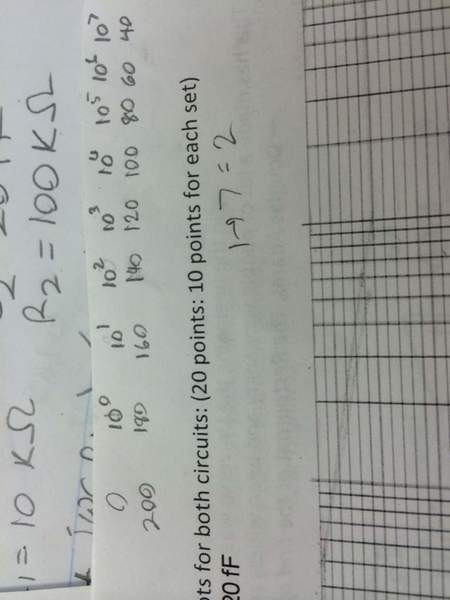 R2 = 100 KΩ
1 = 10 KΩ
0 10^0 10^1 10^2 10^3 10^4 10^5 10^6 10^7
200 180 160 140 120 100 80 60 40
ots for both circuits: (20 points: 10 points for each set)
20 fF
1→7 = 2